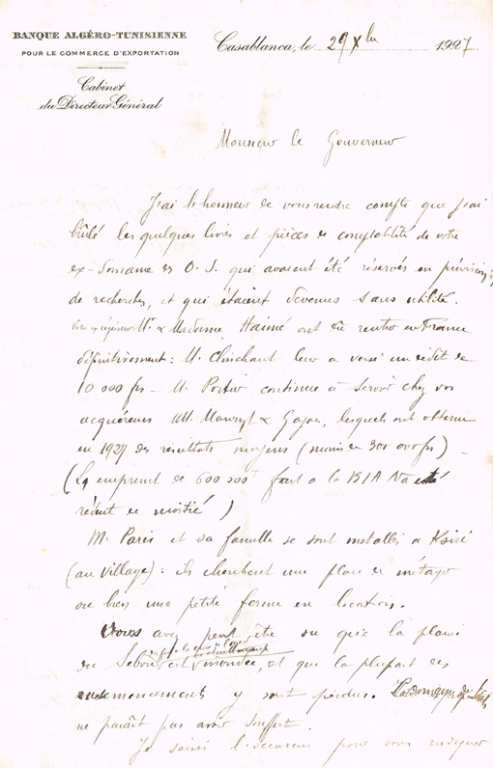 BANQUE ALGÉRO-TUNISIENNE
POUR LE COMMERCE D'EXPORTATION
Cabinet
du Directeur Général
Casablanca, le 29 Xbre 1927
Monsieur le Gouverneur
J'ai l'honneur de vous rendre compte que j'ai
brûlé les quelques livres et pièces de comptabilité de votre
ex- O. S. qui avaient été réservés en prévision
de recherches, et qui étaient devenus sans utilité.
Mr. & Madame Haimé ont dû rentrer en France
définitivement : M. Clinchant leur a versé un crédit de
10 000 frs - M. continue à servir chez vos
acquéreurs MM. & lesquels ont obtenu
en 1927 des résultats moyens (moins de 300 000 frs)
(Le emprunt de 600 000 fait à la été
réduit de moitié)
M. Paris et sa famille se sont installés à
(au village) : ils cherchent une place de métayer
ou bien une petite ferme en location.
Vous avez peut être su que la plaine
du Sebou est inondée, et que la plupart des
ensemencements y sont perdus.
ne paraît pas avoir souffert.
Je saisis l'occasion pour vous